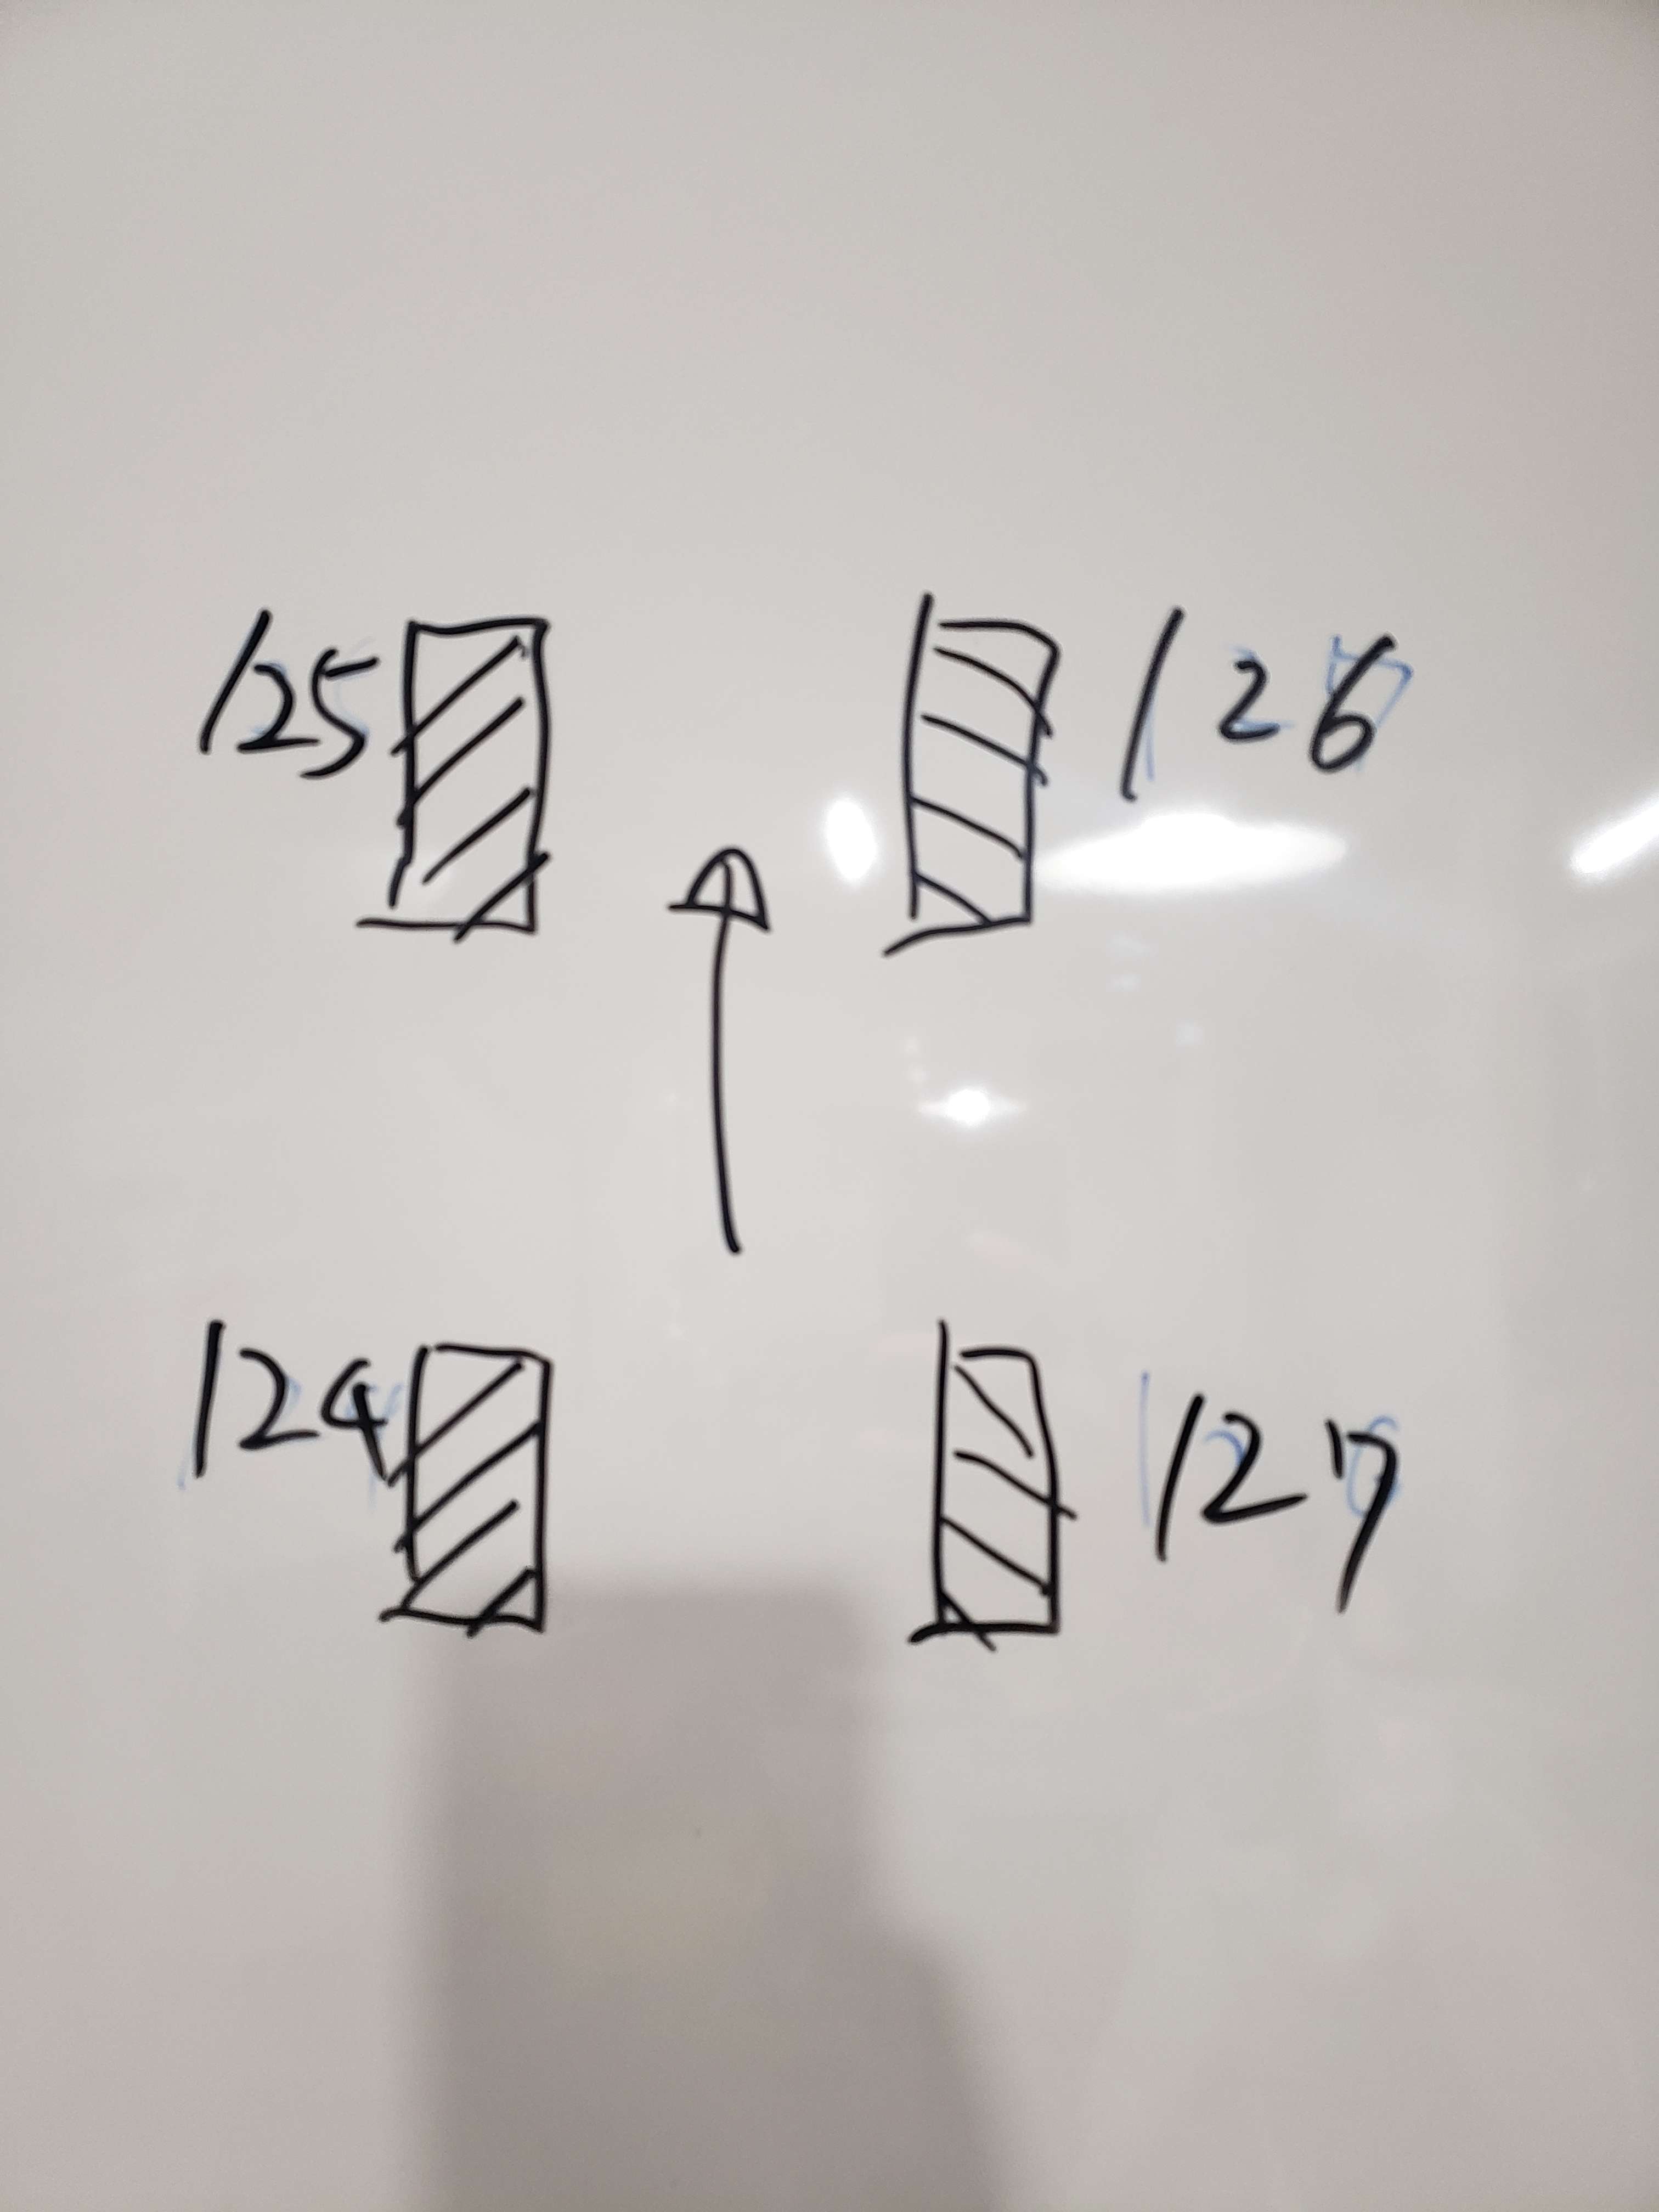 125 126
124 127